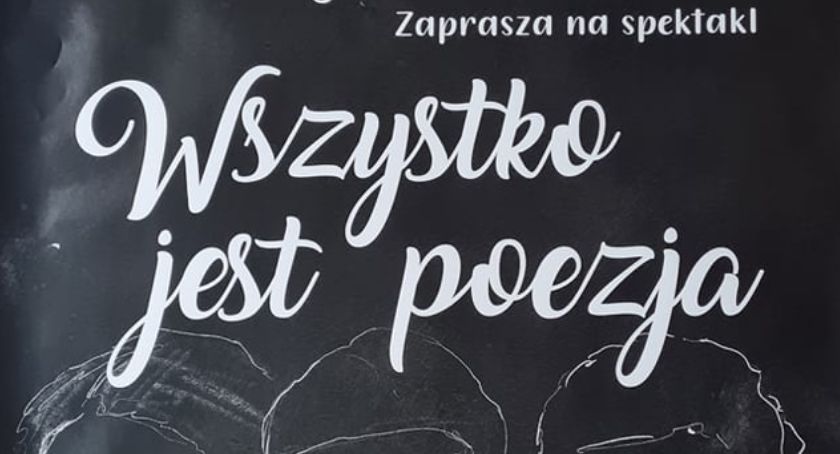 Zaprasza na spektakl
Wszystko
jest poezja